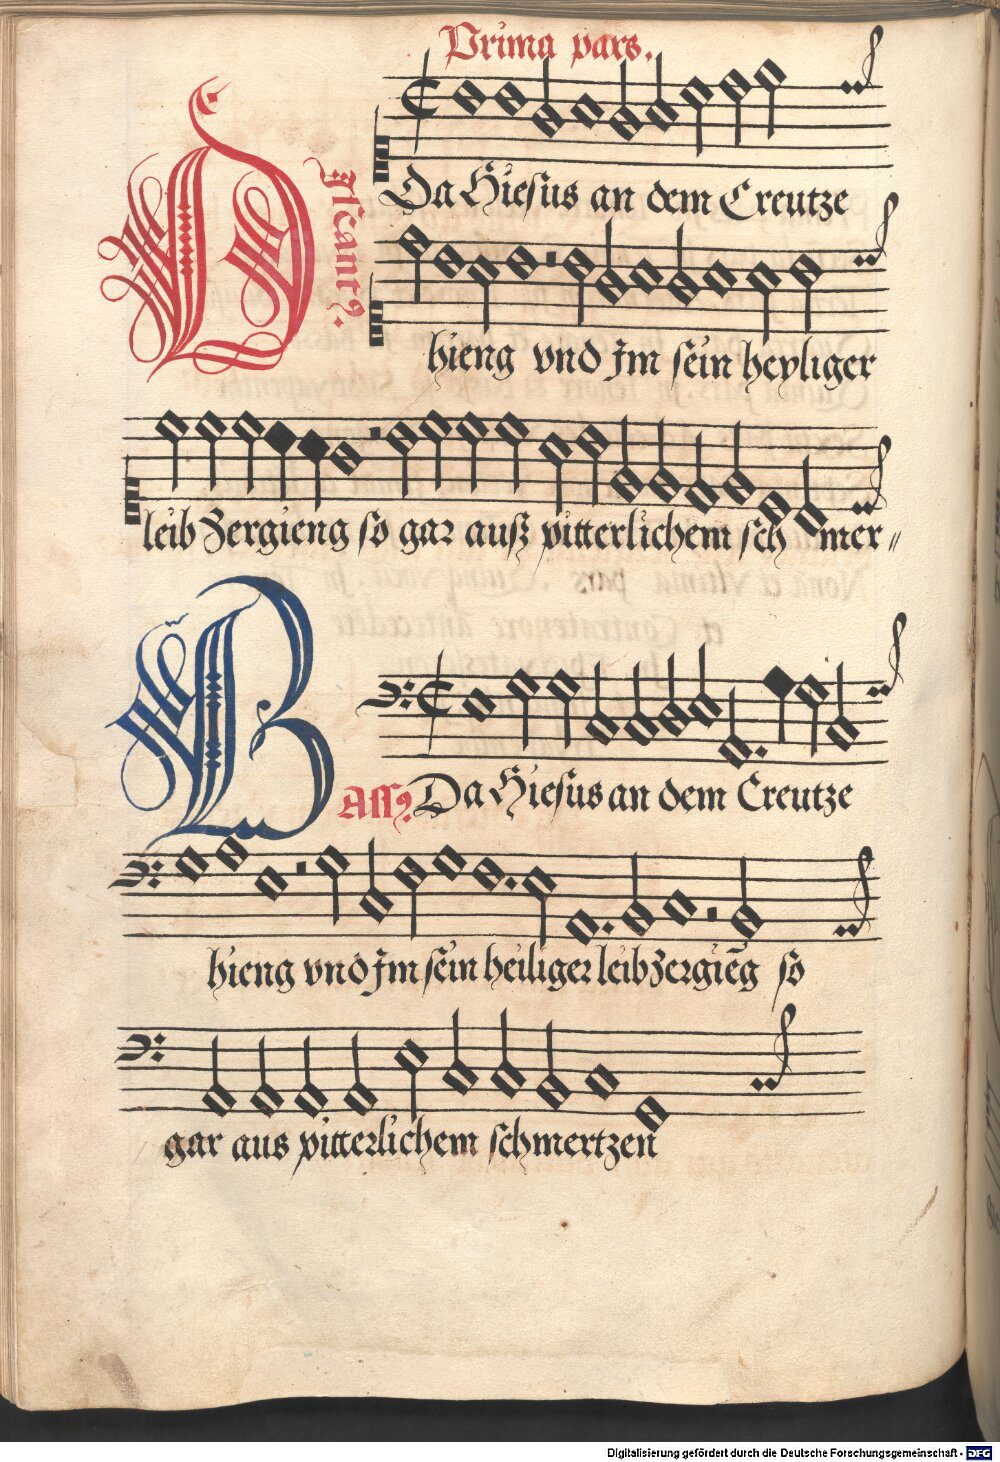 Prima pars.
Discantꝰ.
Da Hiesus an dem Creutze
hieng vnd jm sein heyliger
leib Zergieng so gar auß pitterlichem sch mer〃
Bassꝰ
Da Hiesus an dem Creutze
hieng vnd jm sein heiliger leib Zergiēg so
gar aus pitterlichem schmertzen
Digitalisierung gefördert durch die Deutsche Forschungsgemeinschaft - DFG